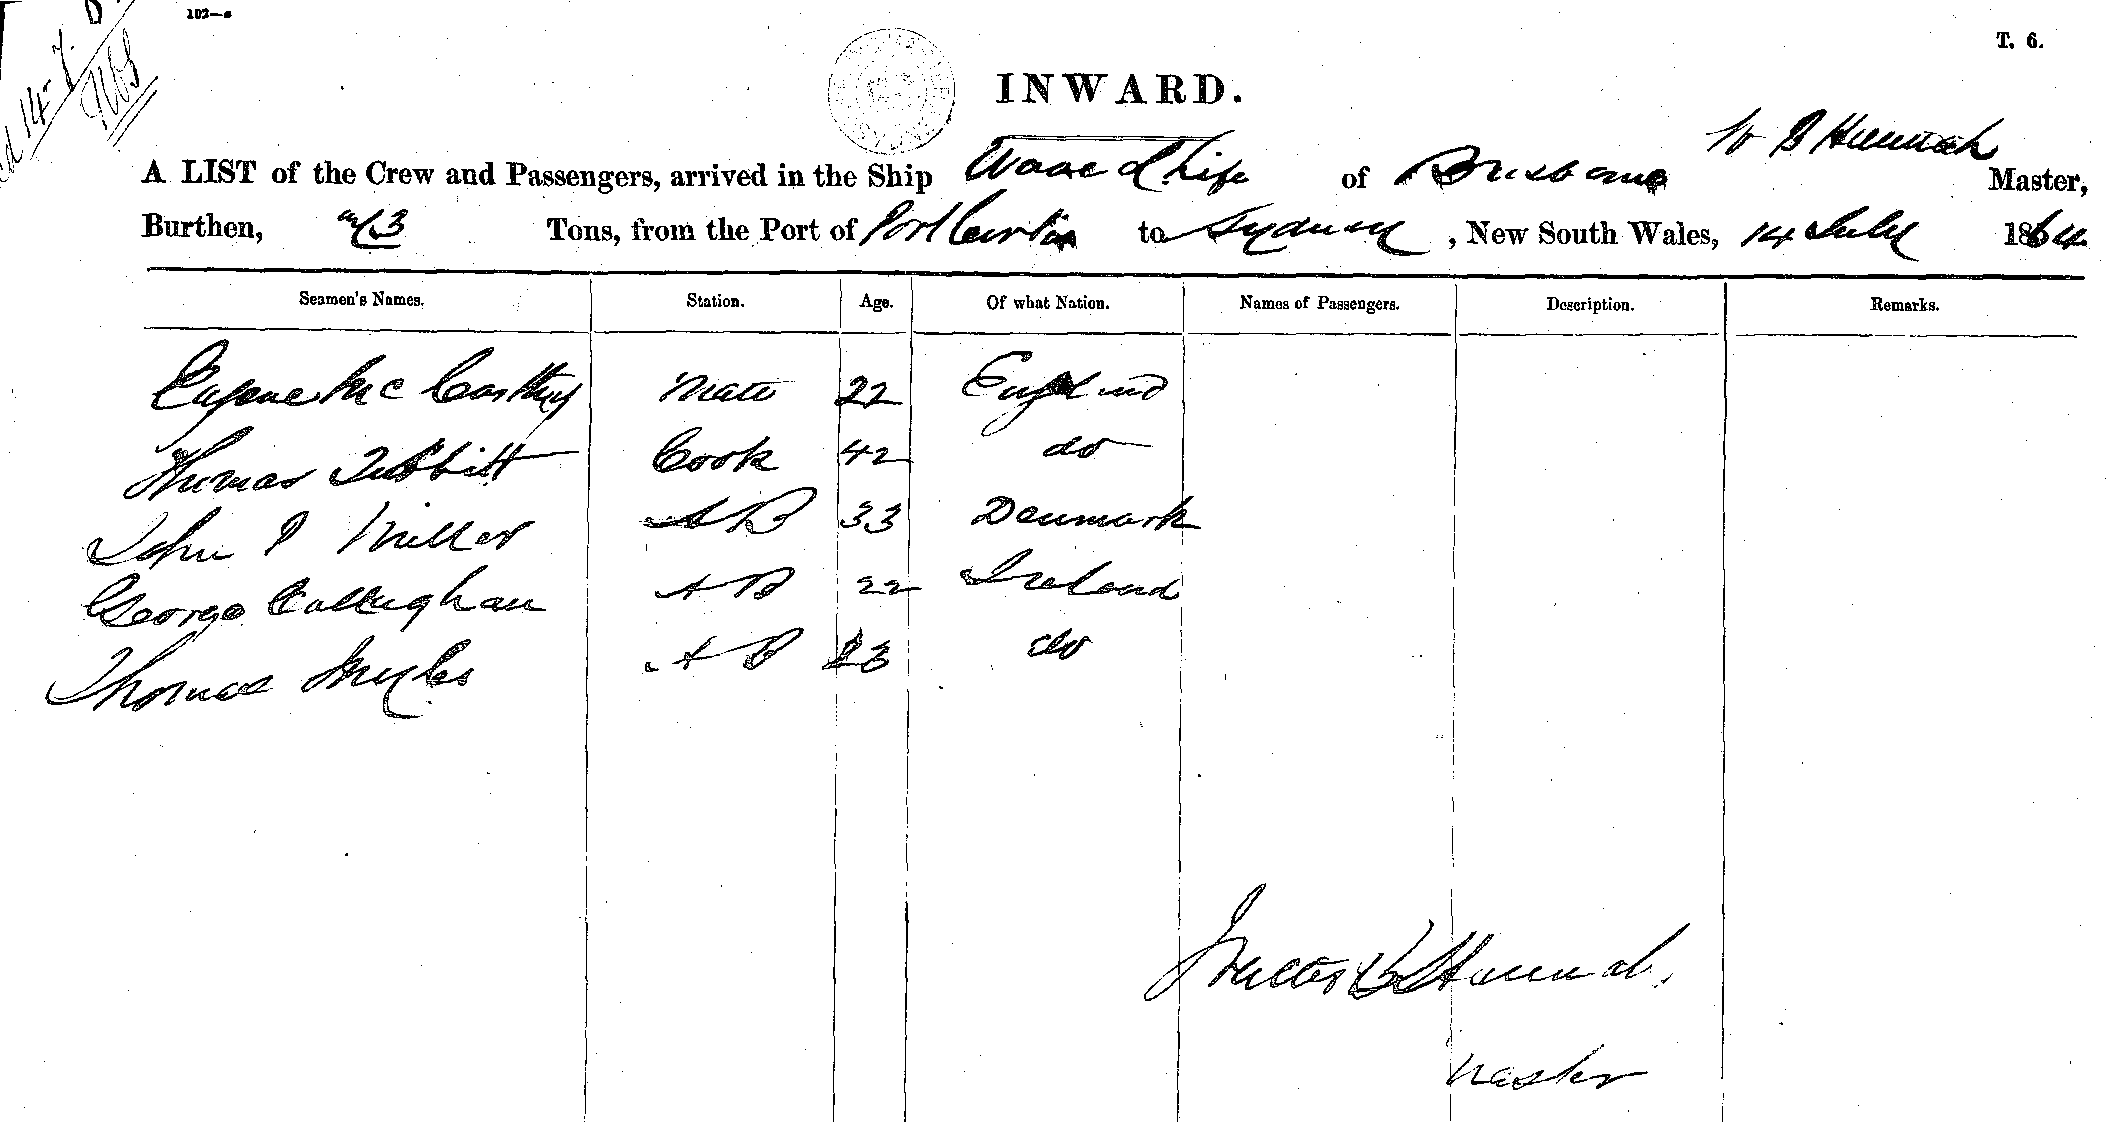 T. 6.
INWARD.
W B Hannah
A LIST of the Crew and Passengers, arrived in the Ship Wave of Life of Brisbane Master,
Burthen, Tons, from the Port of Port Curtis to Sydney, New South Wales, 14 July 1864
Seamen's Names. Station. Age. Of what Nation. Names of Passengers. Description. Remarks.
Eugene McCarthy Mate 22 England
Thomas Tebbitt Cook 42 do
John P Miller A B 33 Denmark
George Callaghan A B 22 Ireland
Thomas Myles A B 23 do
Walter B Hannah.
Master